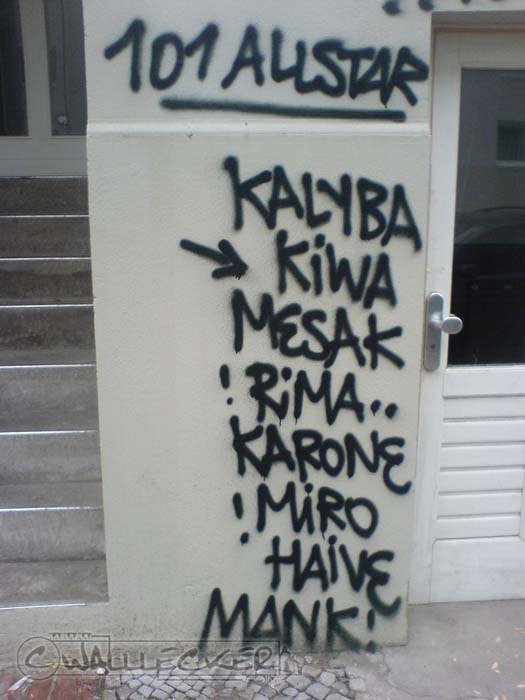 101 ALLSTAR
KALYBA
KIWA
MESAK
!RIMA..
KARONE
!MIRO
HAIVE
MANK!